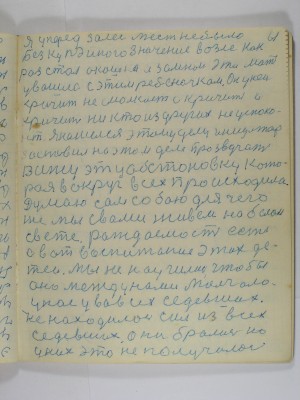 я упред залес мест небыло
без купэйного значение возле нах
роз стол окошка я замной эта мат
увашла с этим ребёночкам, он уноа
кричит не может а кричит и
кричит ни кто из других не успоко-
ит. Я нашелся этому делу
оставил на этом деле
вижу эту абстоновку кото-
рая вокруг всех происходила.
Думаю сам собаю для чего
же мы с вами живем на белом
свете. рождаемость есть
а вот воспитание этих де-
тей. мы не научились чтобы
оно между нами молчало.
у нас у всех седевших,
не находилось сил из всех
седевших они брались но
у них это не получалось